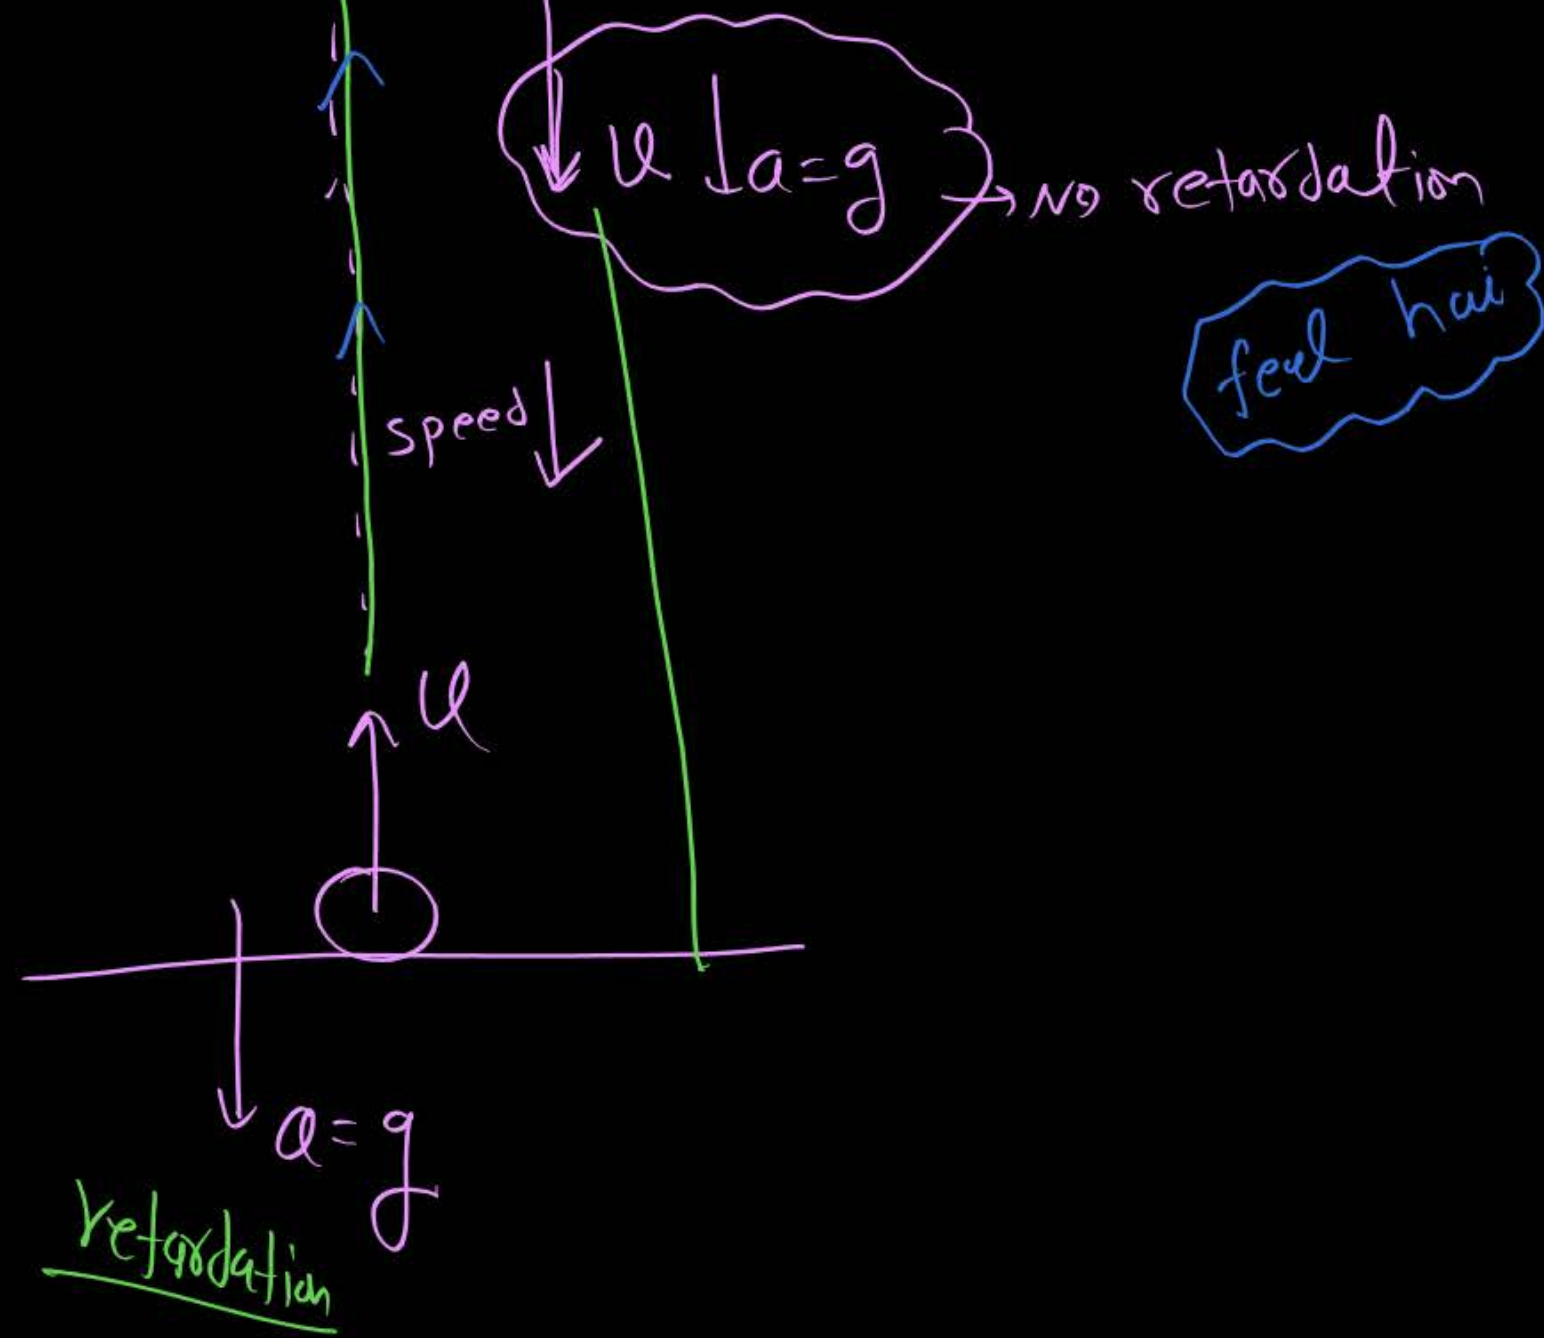 u ↓a=g → No retardation
feel hai
speed ↓
u
a=g
retardation